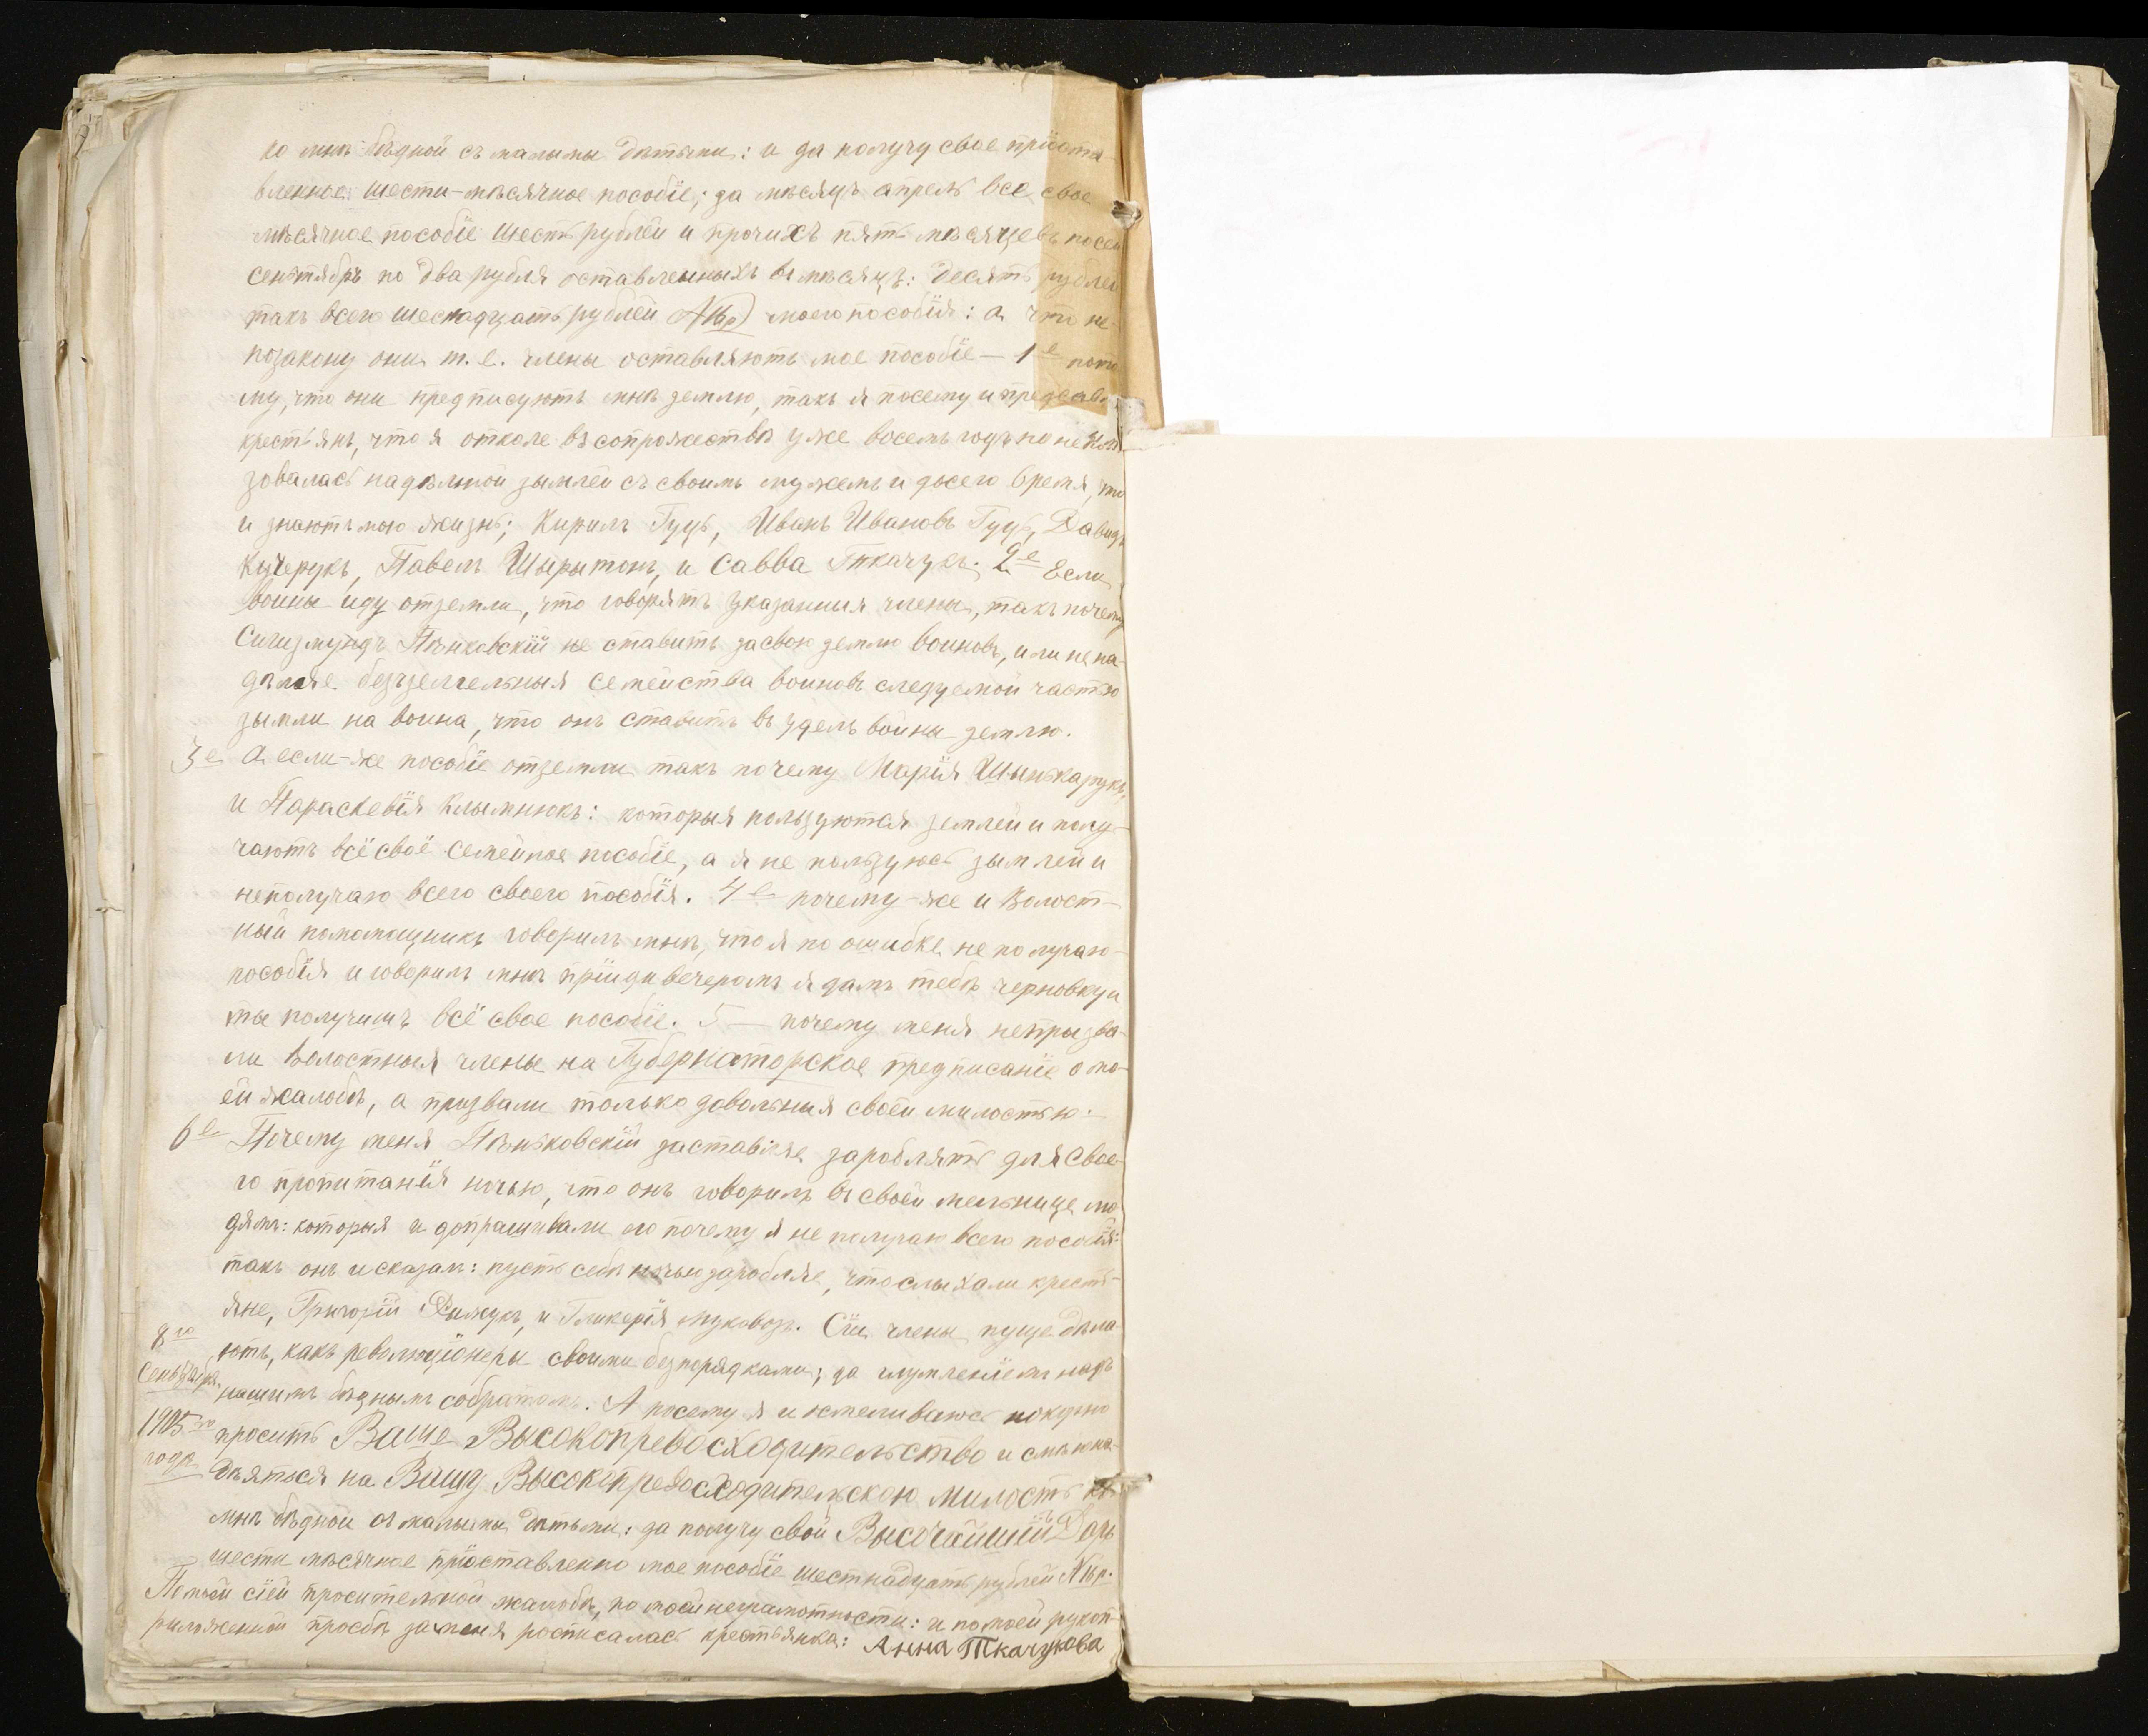 ко мнѣ бѣдной съ малыми дѣтьми: и да получу свое пріоста-
вленное шести-мѣсячное пособіе; за мѣсяцъ апрель все свое
мѣсячное пособіе шесть рублей и прочихъ пять мѣсяцевъ посей
сентябрь по два рубля оставленныхъ въ мѣсяцъ: десять рублей
такъ всего шеснадцать рублей моего пособія: а что не-
позакону они т. е. члены оставляють мое пособіе — 1е пото
му, что они предписують мнѣ землю, такъ я посему и представ
крестьянъ, что я отколе въ сопрожествѣ уже восемь годъ но не поль
зовалась надѣльной зымлей съ своимъ мужемъ и досего время, то
и знають мою жизнь; Кирилъ Гуць, Иванъ Ивановъ Гуць, Давидъ
Кучерукъ, Павелъ Шырытонъ, и Савва Ткачукъ. 2е Если
воины иду отземли, что говорятъ указанныя члены, такъ почему
Сигизмундъ Пѣнковскій не ставить засвою землю воиновъ, или не на-
дѣляе безъземельныя семейства воиновъ следуемой частью
зымли на воина, что онъ ставитъ въ удель войны землю.
3е а если-же пособіе отземли такъ почему Марія Шынькарукъ,
и Параскевія Клымнюкъ: которыя пользуются землей и полу-
чають всё своё семейное пособіе, а я не пользуюсь зымлей и
неполучаю всего своего пособія. 4е почему-же и Волост-
ный помомощникъ говорилъ мнѣ, что я по ошибке не получаю
пособія и говорилъ мнѣ прійди вечеромъ я дамъ тебѣ черновку и
ты получишъ всё свое пособіе. 5 — почему меня непрызва-
ли волостныя члены на Губернаторское предписаніе о мо-
ей жалобѣ, а призвали только довольныя своей милостью.
6е Почему меня Пѣньковскій заставляе зароблять для свое-
го пропитанія ночью, что онъ говорилъ въ своей мельнице лю
дямъ: которыя и допрашивали его почему я не получаю всего пособія:
такъ онъ и сказалъ: пусть себѣ ночью заробляе, что слыхали кресть-
яне, Григорій Димукъ, и Гликерія Муковозъ. Сіи члены пуще дѣла-
ють, какъ революціонеры своими безпорядками; да глумленіемъ надъ
нашимъ бѣднымъ собратомъ. А посему я и осмеливаюсь покорно
просить Ваше Высокопревосходительство и смѣю на-
дѣяться на Вашу Высокопревосходительскою милость ко
мнѣ бѣдной съ малыми дѣтьми: да получу свой Высочайшій Даръ
шести мѣсячное пріоставленно мое пособіе шестнадцать рублей 16 р.
сіей просительной жалобѣ, по моей неграмотности: и по моей рукоп
риложенной просбѣ заменя росписалась крестьянка: Анна Ткачукова
8го
Сентября
1905го
года